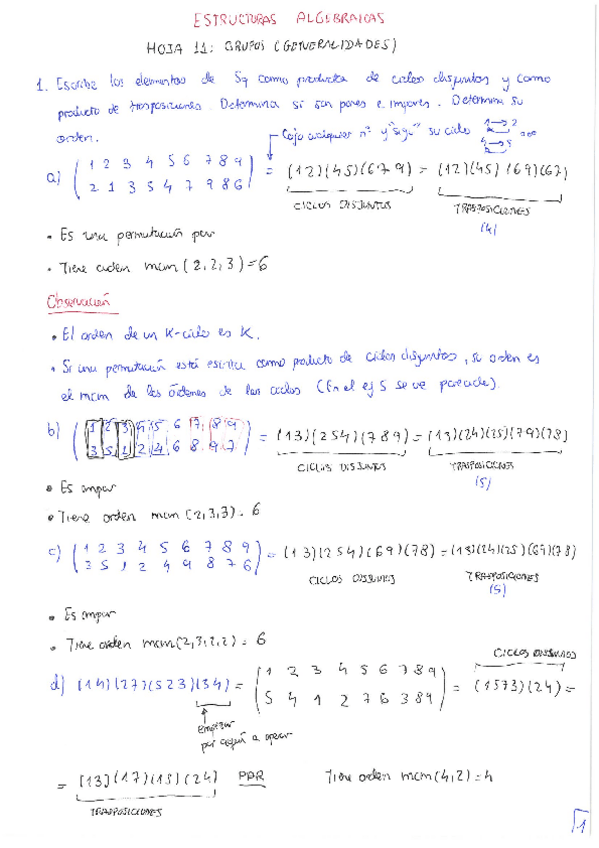 ESTRUCTURAS ALGEBRAICAS
HOJA 11: GRUPOS (GENERALIDADES)
1. Escribe los elementos de S9 como producto de ciclos disjuntos y como
producto de trasposiciones. Determina si son pares e impares. Determina su
orden.
Cojo cualquier nº y "sigo" su ciclo 1→2
4→5
a) (1 2 3 4 5 6 7 8 9
2 1 3 5 4 7 9 8 6) = (12)(45)(679) = (12)(45)(69)(67)
CICLOS DISJUNTOS TRASPOSICIONES
(4)
• Es una permutación par
• Tiene orden mcm(2,2,3)=6
Observación
• El orden de un K-ciclo es K.
• Si una permutación está escrita como producto de ciclos disjuntos, su orden es
el mcm de los órdenes de los ciclos (En el ej 5 se ve parecido).
b) (1 2 3 4 5 6 7 8 9
3 5 1 2 4 6 8 9 7) = (13)(254)(789) = (13)(24)(25)(79)(78)
CICLOS DISJUNTOS TRASPOSICIONES
(5)
• Es impar
• Tiene orden mcm(2,3,3)=6
c) (1 2 3 4 5 6 7 8 9
3 5 1 2 4 9 8 7 6) = (13)(254)(69)(78) = (13)(24)(25)(69)(78)
CICLOS DISJUNTOS TRASPOSICIONES
(5)
• Es impar
• Tiene orden mcm(2,3,2,2) = 6
CICLOS DISJUNTOS
d) (14)(27)(523)(34) = (1 2 3 4 5 6 7 8 9
5 4 1 2 7 6 3 8 9) = (1573)(24) =
empezar
por aquí a operar
= (13)(17)(15)(24) PAR Tiene orden mcm(4,2)=4
TRASPOSICIONES
1